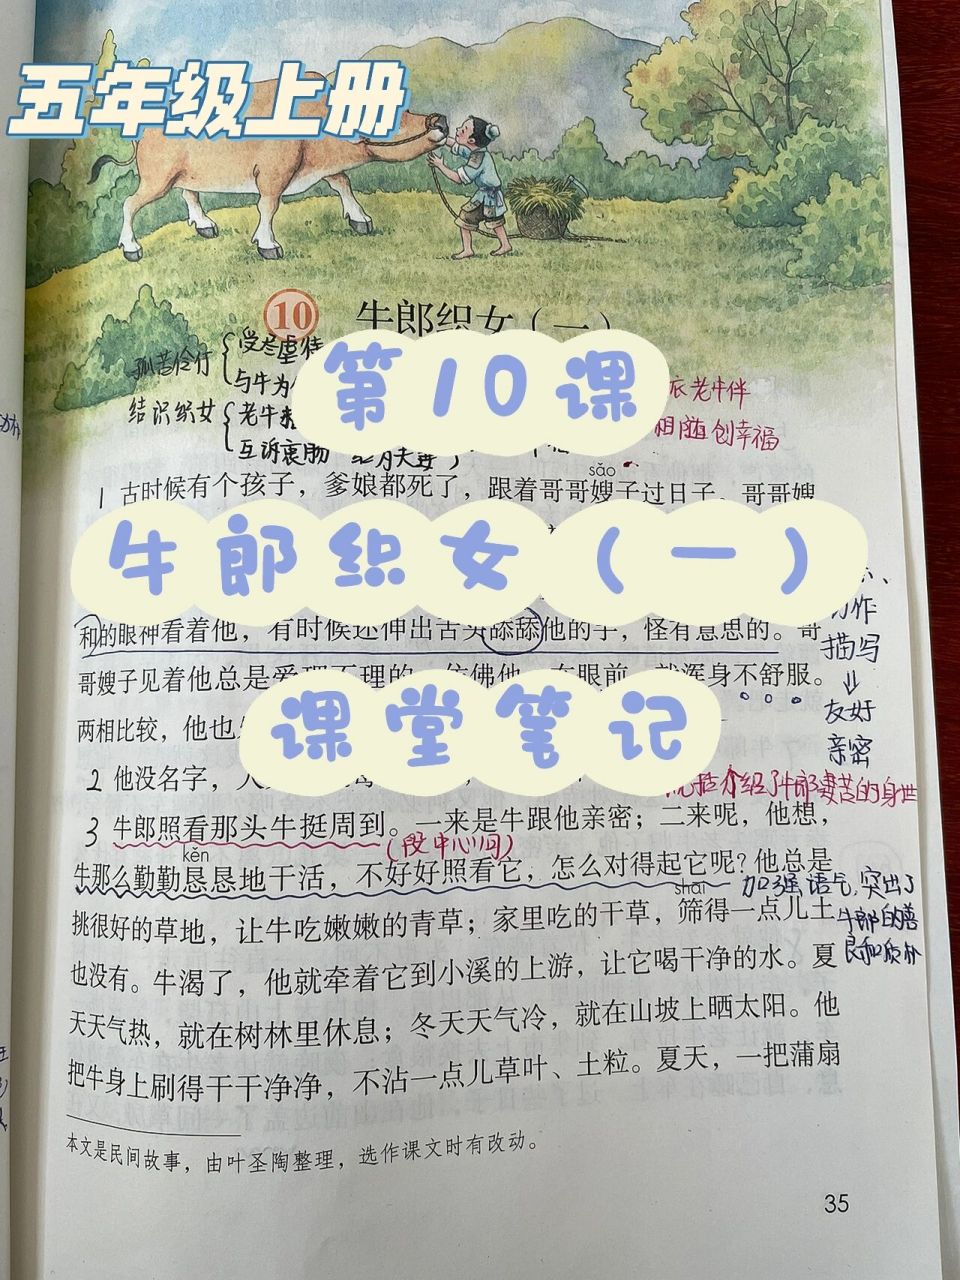 五年级上册
10 牛郎织女（一）
第10课
孤苦伶仃
受尽虐待
与牛为
结识织女
老牛
互诉衷肠
衣老牛伴
相随创幸福
sǎo
1 古时候有个孩子，爹娘都死了，跟着哥哥嫂子过日子。哥哥嫂
牛郎织女（一）
动作
描写
⇓
友好
亲密
和的眼神看着他，有时候还伸出舌头舔舔他的手，怪有意思的。哥
哥嫂子见着他总是爱理不理的，仿佛他一在眼前，就浑身不舒服。
课堂笔记
两相比较，他也
2 他没名字，
介绍了牛郎凄苦的身世
3 牛郎照看那头牛挺周到。一来是牛跟他亲密；二来呢，他想，
(段中心句)
kěn
牛那么勤勤恳恳地干活，不好好照看它，怎么对得起它呢？他总是
shāi
加强语气，突出了
牛郎的善
良和质朴
挑很好的草地，让牛吃嫩嫩的青草；家里吃的干草，筛得一点儿土
也没有。牛渴了，他就牵着它到小溪的上游，让它喝干净的水。夏
天天气热，就在树林里休息；冬天天气冷，就在山坡上晒太阳。他
把牛身上刷得干干净净，不沾一点儿草叶、土粒。夏天，一把蒲扇
本文是民间故事，由叶圣陶整理，选作课文时有改动。
35